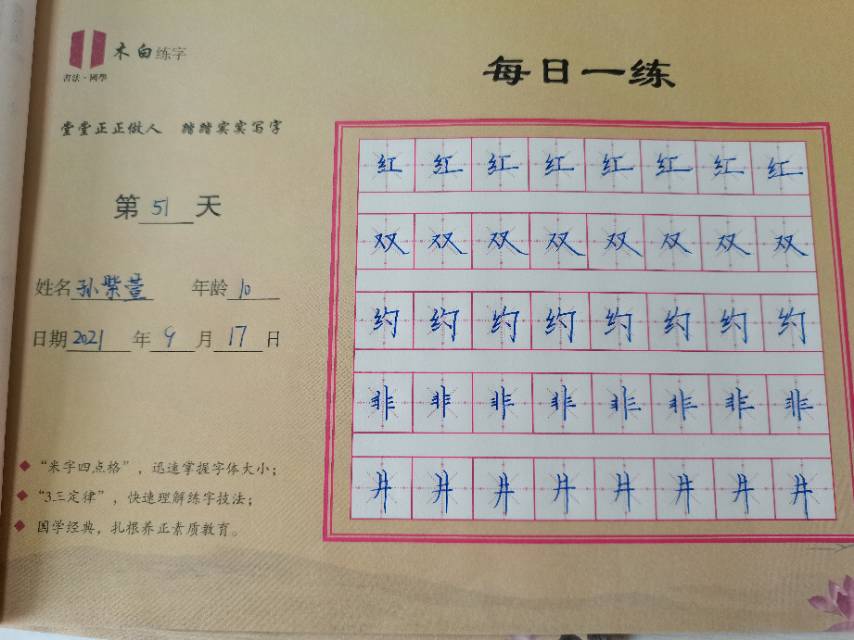 木白练字
書法·國學
每日一练
堂堂正正做人 踏踏实实写字
第51天
姓名孙紫萱 年龄10
日期2021年9月17日
红红红红红红红红
双双双双双双双双
约约约约约约约约
非非非非非非非非
井井井井井井井井
“米字四点格”，迅速掌握字体大小；
“3.三定律”，快速理解练字技法；
国学经典，扎根养正素质教育。